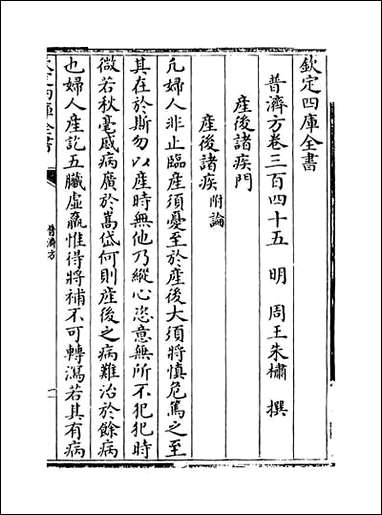 欽定四庫全書
普濟方卷三百四十五　明　周王朱橚　撰
產後諸疾門
產後諸疾附論
凡婦人非止臨産須憂至於産後大須將慎危篤之至
其在於斯勿以産時無他乃縱心恣意無所不犯犯時
微若秋毫感病廣於嵩岱何則産後之病難治於餘病
也婦人産訖五臟虛羸惟得將補不可轉瀉若其有病
欽定四庫全書
普濟方
一